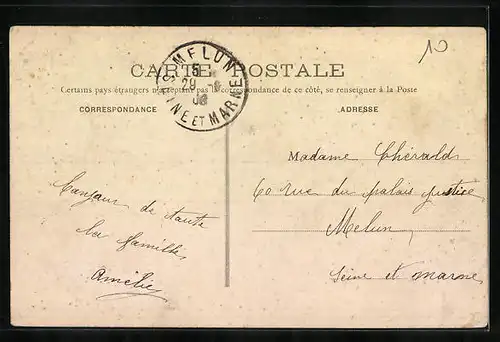 10
MELUN
SEINE ET MARNE
CARTE POSTALE
Certains pays étrangers n'acceptant pas la correspondance de ce côté, se renseigner à la Poste
CORRESPONDANCE
ADRESSE
Madame
60 rue du palais justice
Melun
Seine et marne
de toute
la famille
Amélie